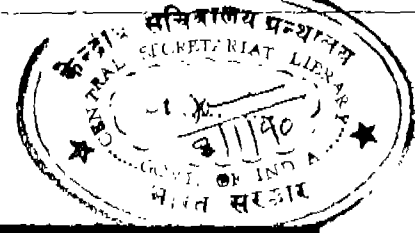 केन्द्रीय सचिवालय ग्रन्थालय
CENTRAL SECRETARIAT LIBRARY
8/11/90
GOVT. OF INDIA
भारत सरकार